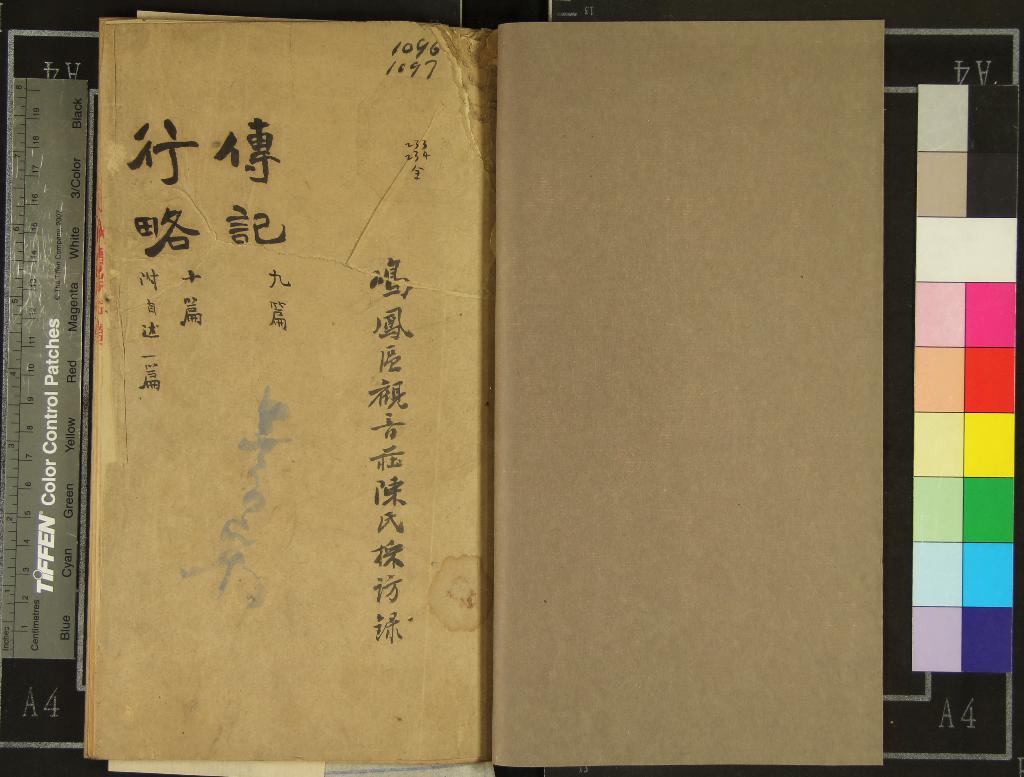 1096
1097
233
234
全
鳴鳳區觀音莊陳氏採訪録
傳記
九篇
行略
十篇
附自述一篇
A4
A4
A4
A4
TIFFEN Color Control Patches
© The Tiffen Company, 2007
Inches
Centimetres
Blue
Cyan
Green
Yellow
Red
Magenta
White
3/Color
Black